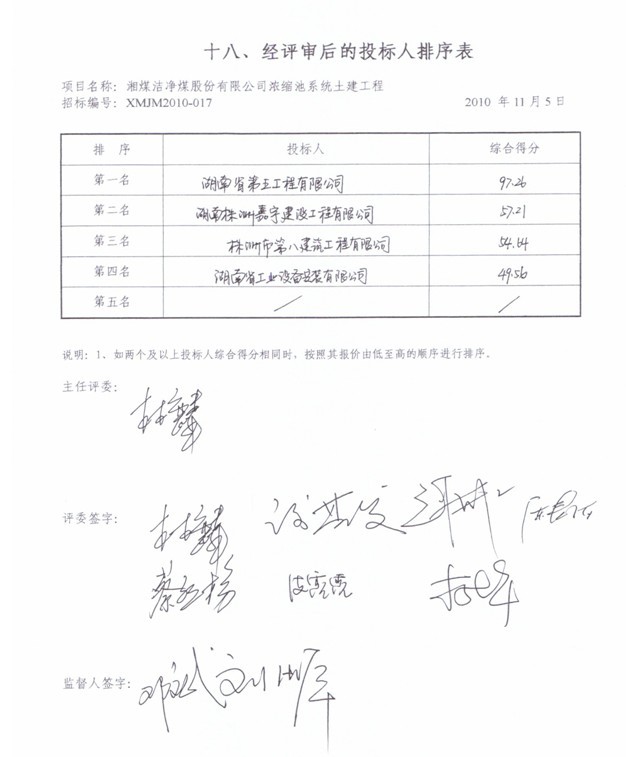 十八、经评审后的投标人排序表
项目名称：湘煤洁净煤股份有限公司浓缩池系统土建工程
招标编号：XMJM2010-017 2010 年 11 月 5 日
排 序 投标人 综合得分
第一名 湖南省第五工程有限公司 97.26
第二名 湖南株洲嘉宇建设工程有限公司 57.21
第三名 株洲市第八建筑工程有限公司 54.64
第四名 湖南省工业设备安装有限公司 49.56
第五名 / /
说明：1、如两个及以上投标人综合得分相同时，按照其报价由低至高的顺序进行排序。
主任评委：
评委签字：
监督人签字：